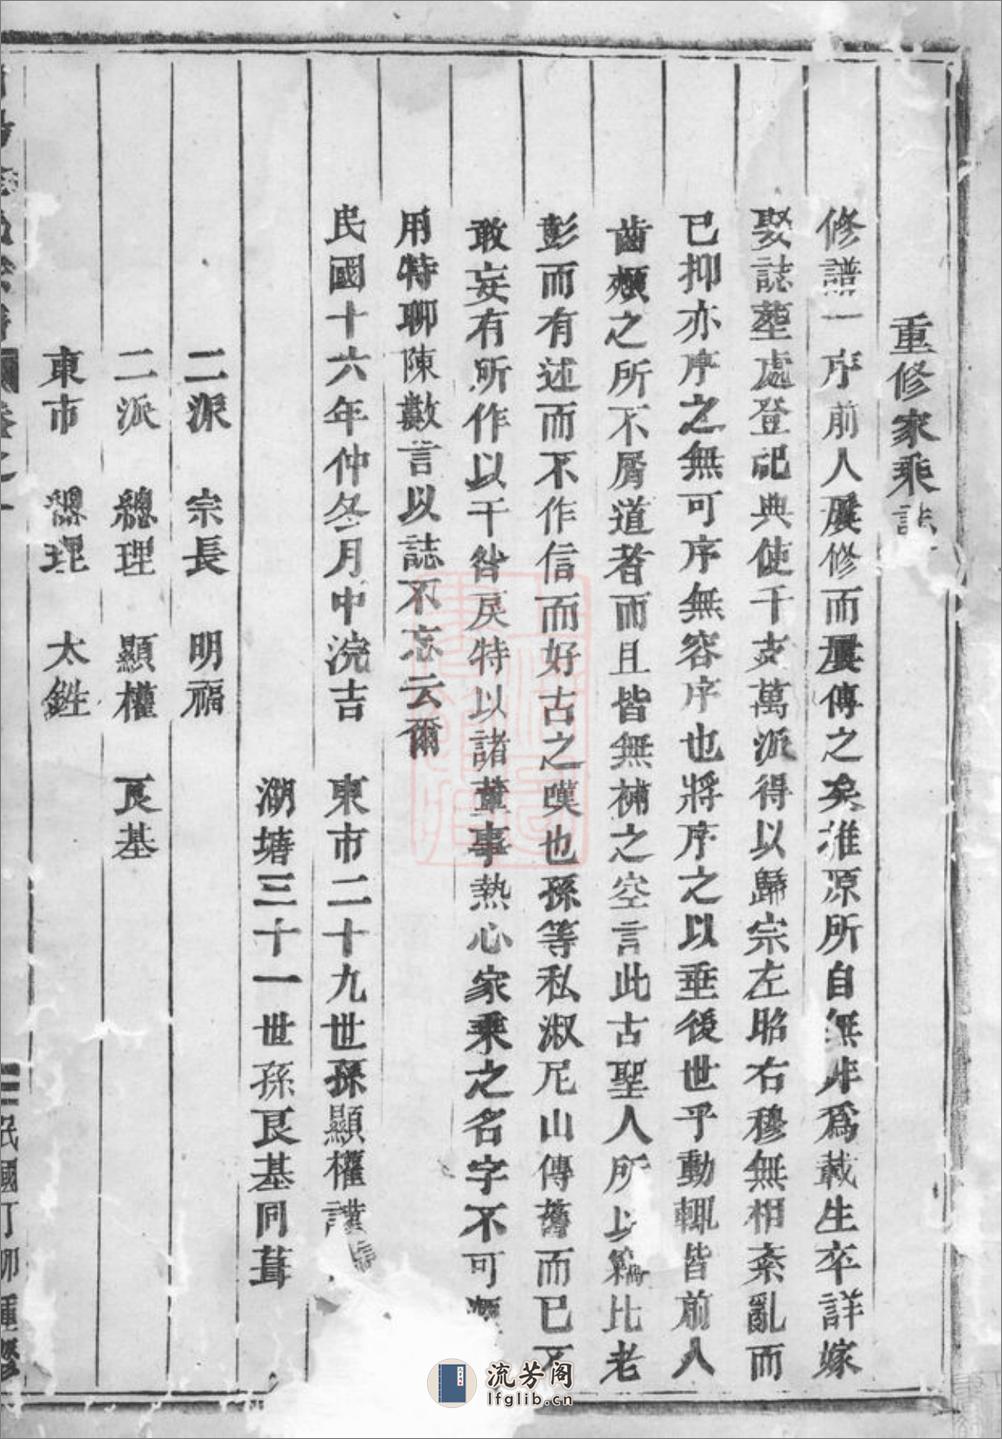 重修家乘誌
修譜一序前人屢修而屢傳之矣推原所自無非爲載生卒詳嫁
娶誌塟處登記典使千支萬派得以歸宗左昭右穆無相紊亂而
已抑亦序之無可序無容序也將序之以垂後世乎動輒皆前人
齒頰之所不屑道者而且皆無補之空言此古聖人所以竊比老
彭而有述而不作信而好古之嘆也孫等私淑尼山傳舊而已不
敢妄有所作以干咎戾特以諸董事熱心家乘之名字不可
用特聊陳數言以誌不忘云爾
民國十六年仲冬月中浣吉 東市二十九世孫顯權謹
湖塘三十一世孫艮基同葺
二派 宗長 明福
二派 總理 顯權 艮基
東市 總理 太鉎
卷之一 民國丁卯重鐫
流芳阁
lfglib.cn